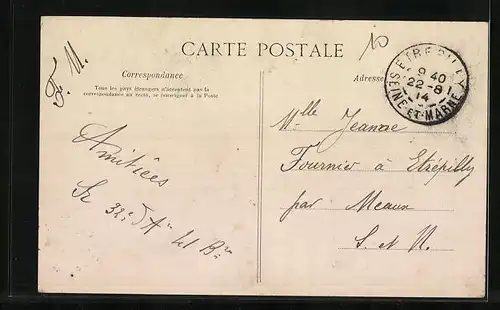 F. M.
CARTE POSTALE
Correspondance
Tous les pays étrangers n'acceptent pas la
correspondance au recto, se renseigner à la Poste
Adresse
ETREPILLY
9 40
22-8
14
SEINE-ET-MARNE
Amitiées
32e
Mlle Jeanne
Fournier à Etrépilly
par Meaux
S. et M.